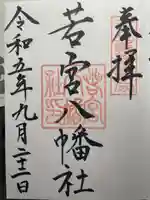 奉拝
若宮八幡社
令和五年九月二十二日